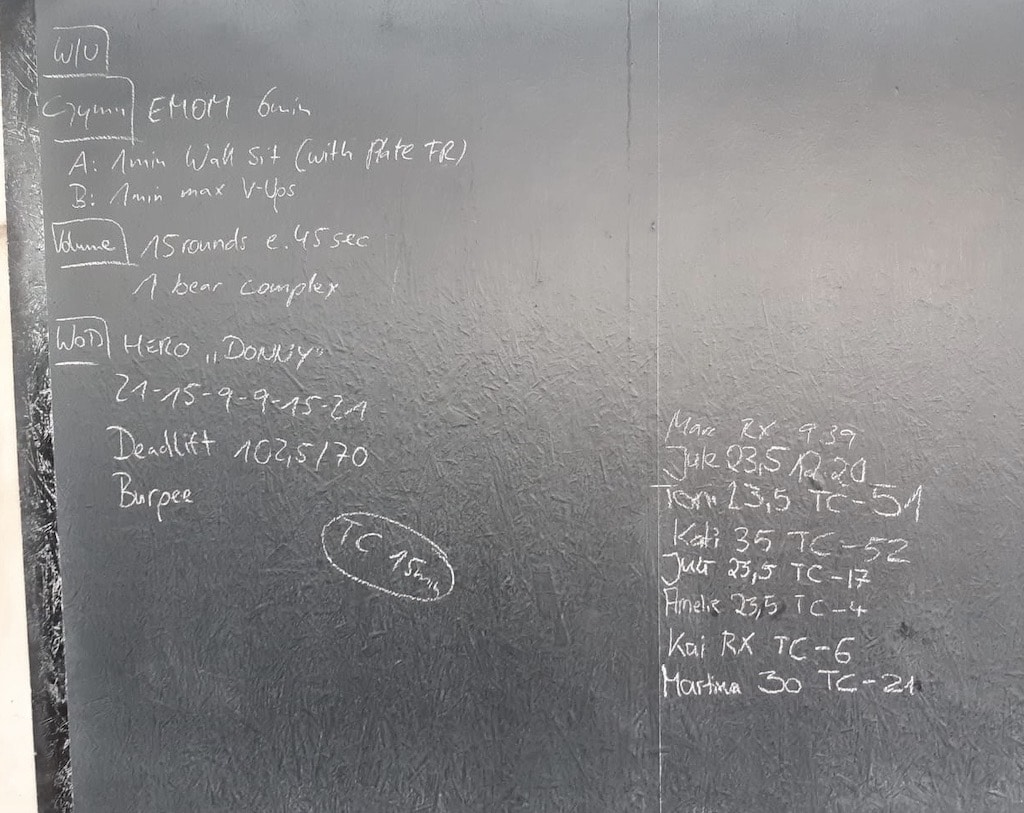 W/U
Gymn EMOM 6min
A: 1min Wall Sit (with plate FR)
B: 1min max V-Ups
Volume 15 rounds e. 45sec
1 bear complex
WOD HERO „DONNY"
21-15-9-9-15-21
Deadlift 102,5/70
Burpee
TC 15min
Marc RX 9 39
Jule 23,5 12.20
Tomi 23,5 TC-51
Kati 35 TC-52
Juli 23,5 TC-17
Amelie 23,5 TC-4
Kai RX TC-6
Martina 30 TC-21